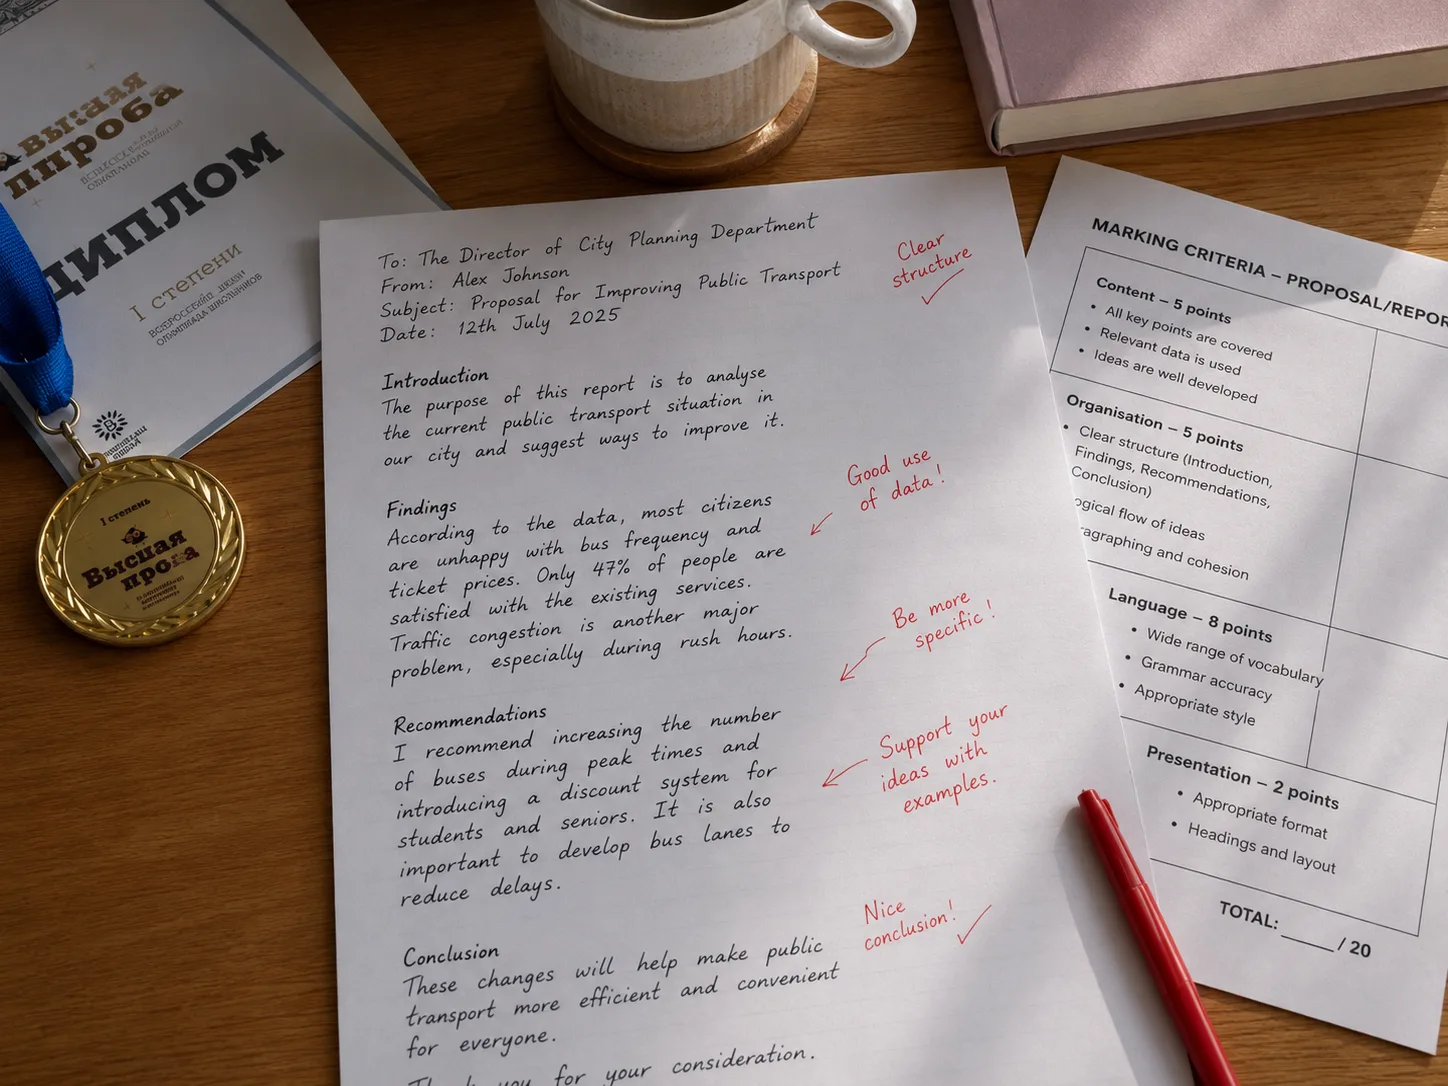 высшая
проба
ДИПЛОМ
I степени
I степень
To: The Director of City Planning Department
From: Alex Johnson
Subject: Proposal for Improving Public Transport
Date: 12th July 2025
Clear
structure
Introduction
The purpose of this report is to analyse
the current public transport situation in
our city and suggest ways to improve it.
Findings
According to the data, most citizens
are unhappy with bus frequency and
ticket prices. Only 47% of people are
satisfied with the existing services.
Traffic congestion is another major
problem, especially during rush hours.
Good use
of data!
Be more
specific!
Recommendations
I recommend increasing the number
of buses during peak times and
introducing a discount system for
students and seniors. It is also
important to develop bus lanes to
reduce delays.
Support your
ideas with
examples.
Conclusion
These changes will help make public
transport more efficient and convenient
for everyone.
Nice
conclusion!
you for your consideration.
MARKING CRITERIA – PROPOSAL/REPOR
Content – 5 points
• All key points are covered
• Relevant data is used
• Ideas are well developed
Organisation – 5 points
• Clear structure (Introduction,
Findings, Recommendations,
Conclusion)
ogical flow of ideas
ragraphing and cohesion
Language – 8 points
• Wide range of vocabulary
• Grammar accuracy
• Appropriate style
Presentation – 2 points
• Appropriate format
• Headings and layout
TOTAL: _____ / 20